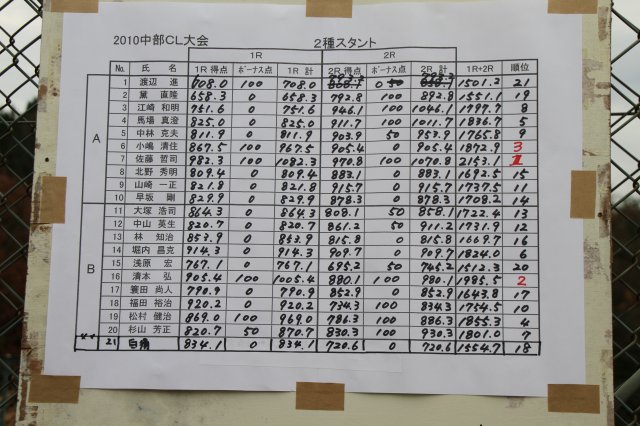 2010中部CL大会 2種スタント
1R 2R
No. 氏 名 1R 得点 ボーナス点 1R 計 2R 得点 ボーナス点 2R 計 1R+2R 順位
A
1 渡辺 進 608.0 100 708.0 50 1501.2 21
2 黛 直隆 658.3 0 658.3 792.8 100 892.8 1551.1 19
3 江崎 和明 751.6 0 751.6 946.1 100 1046.1 1797.7 8
4 馬場 真澄 825.0 0 825.0 911.7 100 1011.7 1836.7 5
5 中林 克夫 811.9 0 811.9 903.9 50 953.9 1765.8 9
6 小嶋 清住 867.5 100 967.5 905.4 0 905.4 1872.9 3
7 佐藤 哲司 982.3 100 1082.3 970.8 100 1070.8 2153.1 1
8 北野 秀明 809.4 0 809.4 883.1 0 883.1 1692.5 15
9 山崎 一正 821.8 0 821.8 915.7 0 915.7 1737.5 11
10 早坂 剛 829.9 0 829.9 878.3 0 878.3 1708.2 14
B
11 大塚 浩司 864.3 0 864.3 808.1 50 858.1 1722.4 13
12 中山 英生 820.7 0 820.7 861.2 50 911.2 1731.9 12
13 林 知治 853.9 0 853.9 815.8 0 815.8 1669.7 16
14 堀内 昌克 914.3 0 914.3 909.7 0 909.7 1824.0 6
15 浅原 宏 767.1 0 767.1 695.2 50 745.2 1512.3 20
16 清本 弘 905.4 100 1005.4 880.1 100 980.1 1985.5 2
17 簑田 尚人 790.9 0 790.9 852.9 0 852.9 1643.8 17
18 福田 裕治 920.2 0 920.2 734.3 100 834.3 1754.5 10
19 松村 健治 869.0 100 969.0 786.3 100 886.3 1855.3 4
20 杉山 芳正 820.7 50 870.7 830.3 100 930.3 1801.0 7
21 834.1 0 834.1 720.6 0 720.6 1554.7 18